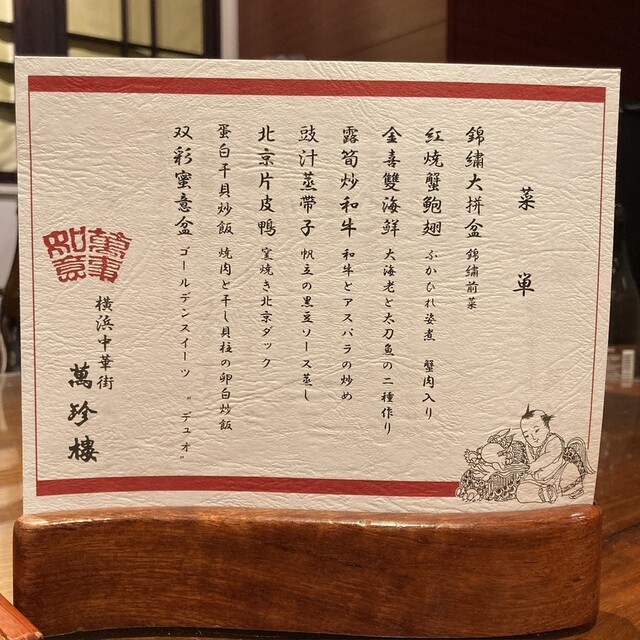 菜単
錦繡大拼盆 錦繍前菜
紅燒蟹鮑翅 ふかひれ姿煮 蟹肉入り
金喜雙海鮮 大海老と太刀魚の二種作り
露筍炒和牛 和牛とアスパラの炒め
豉汁蒸帶子 帆立の黒豆ソース蒸し
北京片皮鴨 窯焼き北京ダック
蛋白干貝炒飯 焼肉と干し貝柱の卵白炒飯
双彩蜜意盆 ゴールデンスイーツ “デュオ”
萬事如意
横浜中華街
萬珍樓